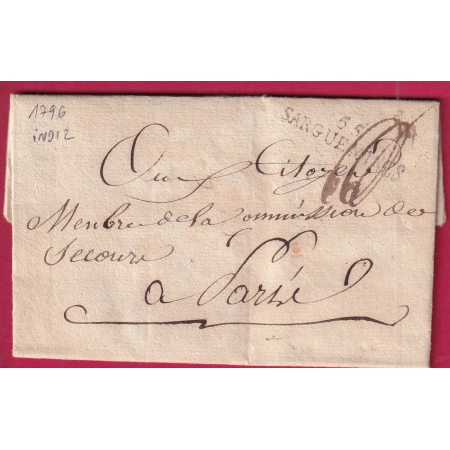 1796
iNDI 2
55
SARGUEMINES
Aux Citoyens
Membre de la Commission de
Secours
a Paris